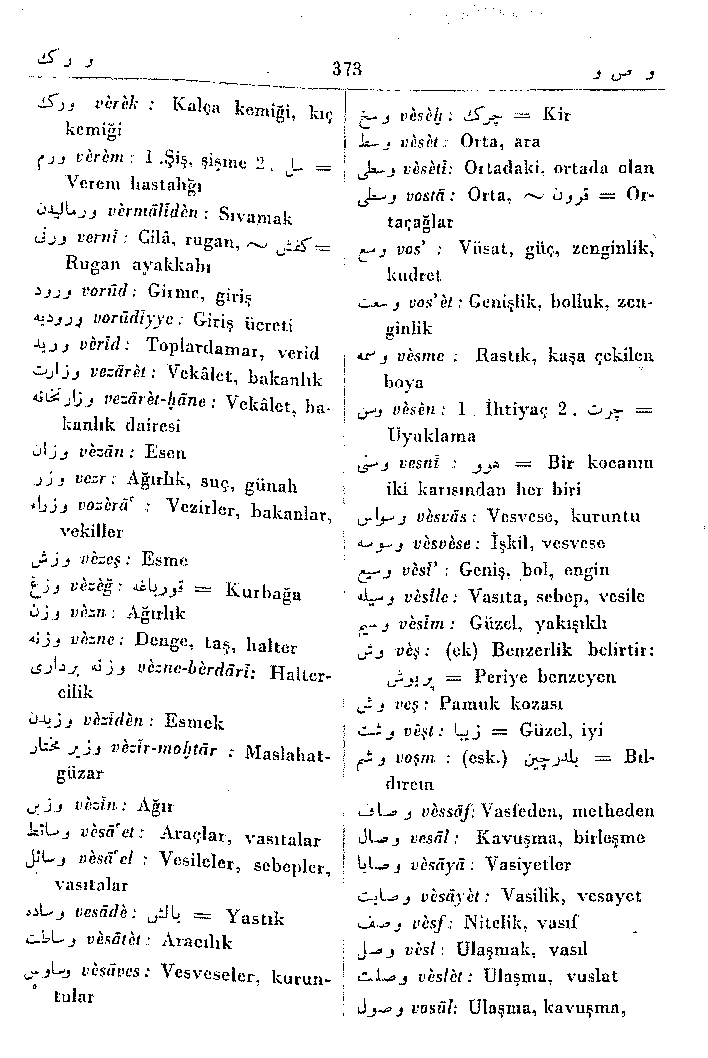 و ر ک
373
و ص و
ورک vèrèk : Kalça kemiği, kıç
kemiği
ورم vèrèm : 1 .Şiş, şişme 2 . سل =
Verem hastalığı
ورمالیدن vèrmâlîdèn : Sıvamak
ورنی vernî : Cilâ, rugan, ~ کفش =
Rugan ayakkabı
ورود vorûd : Girme, giriş
ورودیه vorûdîyye : Giriş ücreti
ورید vèrîd : Toplardamar, verid
وزارت vezârèt : Vekâlet, bakanlık
وزارتخانه vezârèt-ḫâne : Vekâlet, ba-
kanlık dairesi
وزان vèzân : Esen
وزر vezr : Ağırlık, suç, günah
وزراء vozèrâ' : Vezirler, bakanlar,
vekiller
وزش vèzeş : Esme
وزغ vèzèğ : قورباغه = Kurbağa
وزن vèzn : Ağırlık
وزنه vèzne : Denge, taş, halter
وزنه برداری vèzne-bèrdârî : Halter-
cilik
وزیدن vèzîdèn : Esmek
وزیر مختار vèzîr-moḫtâr : Maslahat-
güzar
وزین vèzîn : Ağır
وسائط vèsâ'et : Araçlar, vasıtalar
وسائل vèsâ'el : Vesileler, sebepler,
vasıtalar
وساده vesâdè : بالش = Yastık
وساطت vèsâtèt : Aracılık
وساوس vèsâves : Vesveseler, kurun-
tular
وسخ vèsèḫ : چرک = Kir
وسط vèsèt : Orta, ara
وسطی vèsètî : Ortadaki, ortada olan
وسطی vostâ : Orta, ~ قرون = Or-
taçağlar
وسع vos' : Vüsat, güç, zenginlik,
kudret
وسعت vos'èt : Genişlik, bolluk, zen-
ginlik
وسمه vèsme : Rastık, kaşa çekilen
boya
وسن vèsèn : 1 . İhtiyaç 2 . چرت =
Uyuklama
وسنی vesnî : هوو = Bir kocanın
iki karısından her biri
وسواس vèsvâs : Vesvese, kuruntu
وسوسه vèsvèse : İşkil, vesvese
وسیع vèsî' : Geniş, bol, engin
وسیله vèsîle : Vasıta, sebep, vesile
وسیم vèsîm : Güzel, yakışıklı
وش vèş : (ek) Benzerlik belirtir:
پریوش = Periye benzeyen
وش veş : Pamuk kozası
وشت vèşt : زیبا = Güzel, iyi
وشم voşm : (esk.) بلدرچین = Bıl-
dırcın
وصاف vèssâf : Vasfeden, metheden
وصال vesâl : Kavuşma, birleşme
وصایا vèsâyâ : Vasiyetler
وصایت vèsâyèt : Vasilik, vesayet
وصف vèsf : Nitelik, vasıf
وصل vèsl : Ulaşmak, vasıl
وصلت vèslèt : Ulaşma, vuslat
وصول vosûl : Ulaşma, kavuşma,